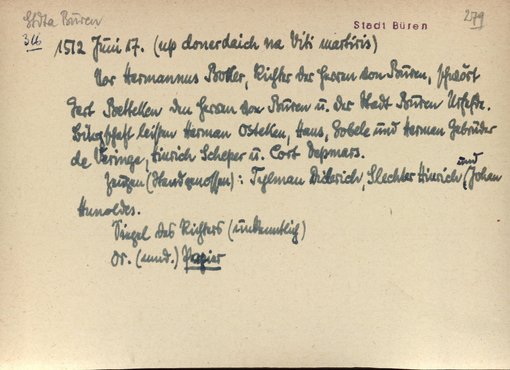 Stdta Büren
Stadt Büren
279
316
1512 Juni 17. (up donerdaich na Viti martiris)
Vor Hermannus Botter, Richter der Herren von Büren, schwört
Gert Boettken den Herren von Büren u. der Stadt Büren Urfehde.
Bürgschaft leisten Herman Ostellen, Hans, Gobele und Herman Gebrüder
de Veringe, Hinrich Scheper u. Cort Deßmars.
Zeugen (Standgenossen): Tylman Dieterich, Slechter Hinrich und Johan
Hunoldes.
Siegel des Richters (undeutlich)
Or. (mnd.) Papier